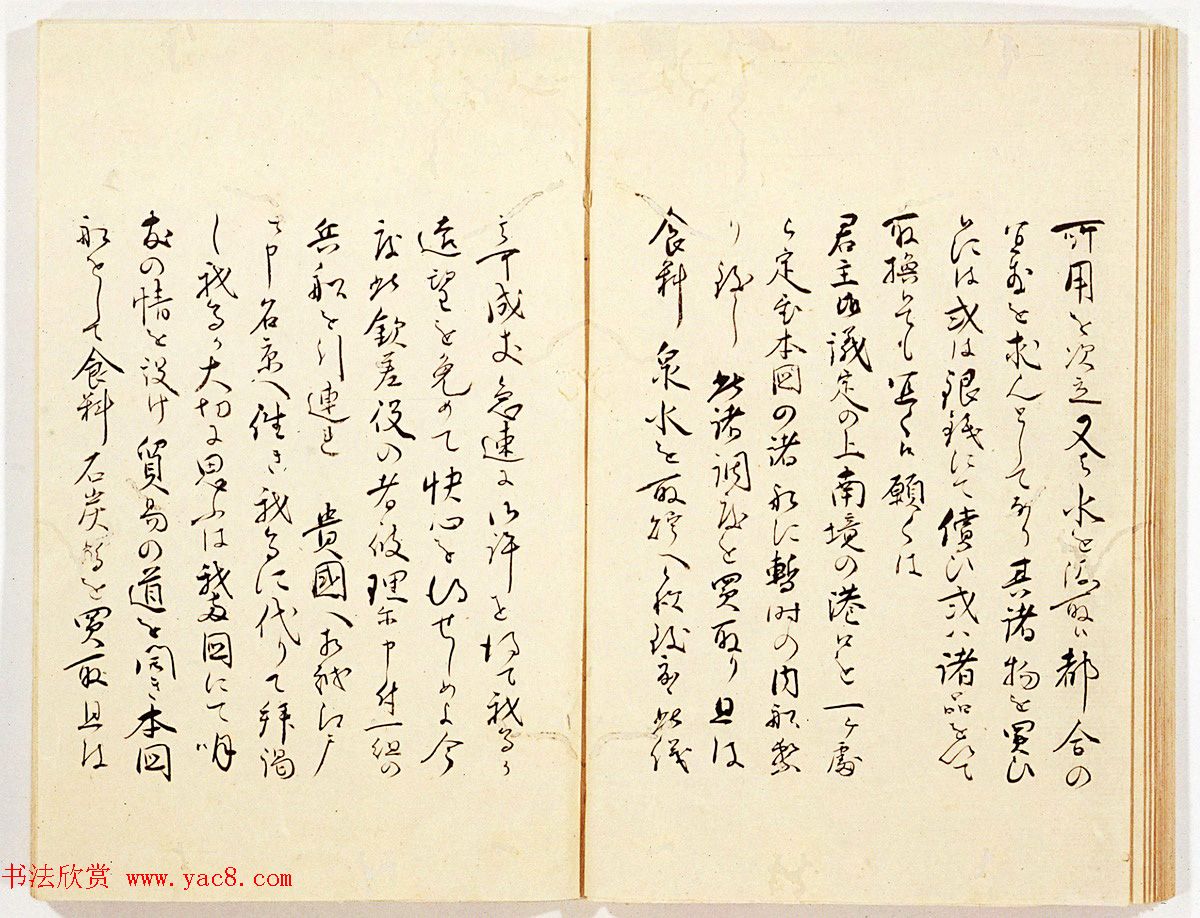 所用を次立又ハ水を汲取ハ都合の
を求んとして 其諸物を買ひ
には或は銀銭にて償ひ或ハ諸品を以て
取換ても 願くは
君主此議定の上南境の港口を一ヶ處
定め本国の諸船に暫时の内船繋
り 此諸調度を買取り且は
食料 泉水を取 此儀
成丈急速に御許を得て我
遠望を免めて快心を得せしめよ今
度此欽差役の者彼理に申付一組の
兵船を引連れ 貴國へ相越江戸
と申名京へ往き我等に代りて拝謁
し我等か大切に思ふは我両国にて明
友の情を設け貿易の道を開き本国
船をして食料石炭等を買取且は
书法欣赏 www.yac8.com